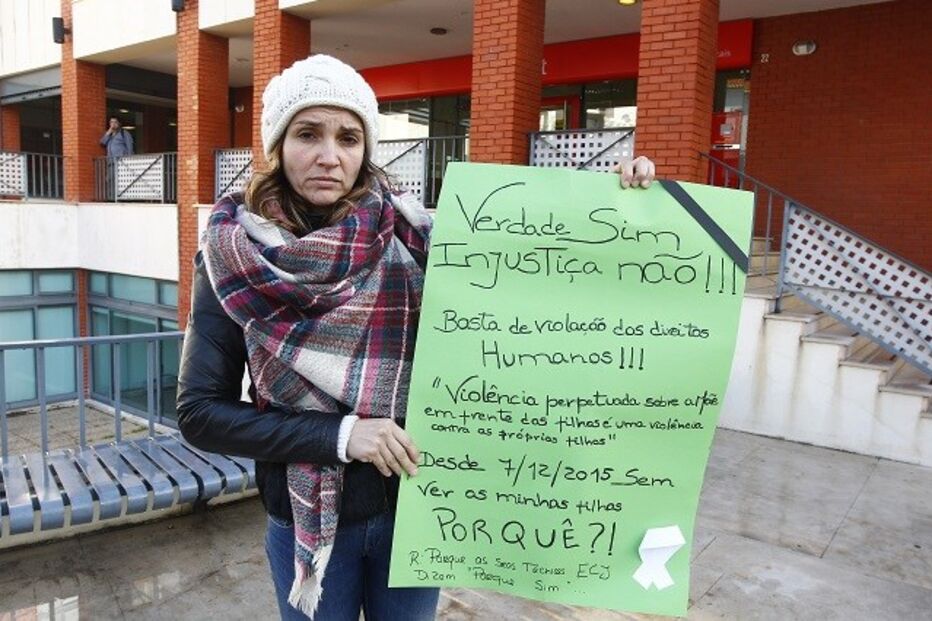 Verdade Sim
Injustiça não!!!
Basta de violação dos direitos
Humanos!!!
"Violência perpetuada sobre a Mãe
em frente das filhas é uma violência
contra as próprias filhas"
Desde 7/12/2015 Sem
ver as minhas filhas
PORQUÊ?!
R: Porque os Seos Técnicos ECJ
Dizem "Porque
Sim"...
22